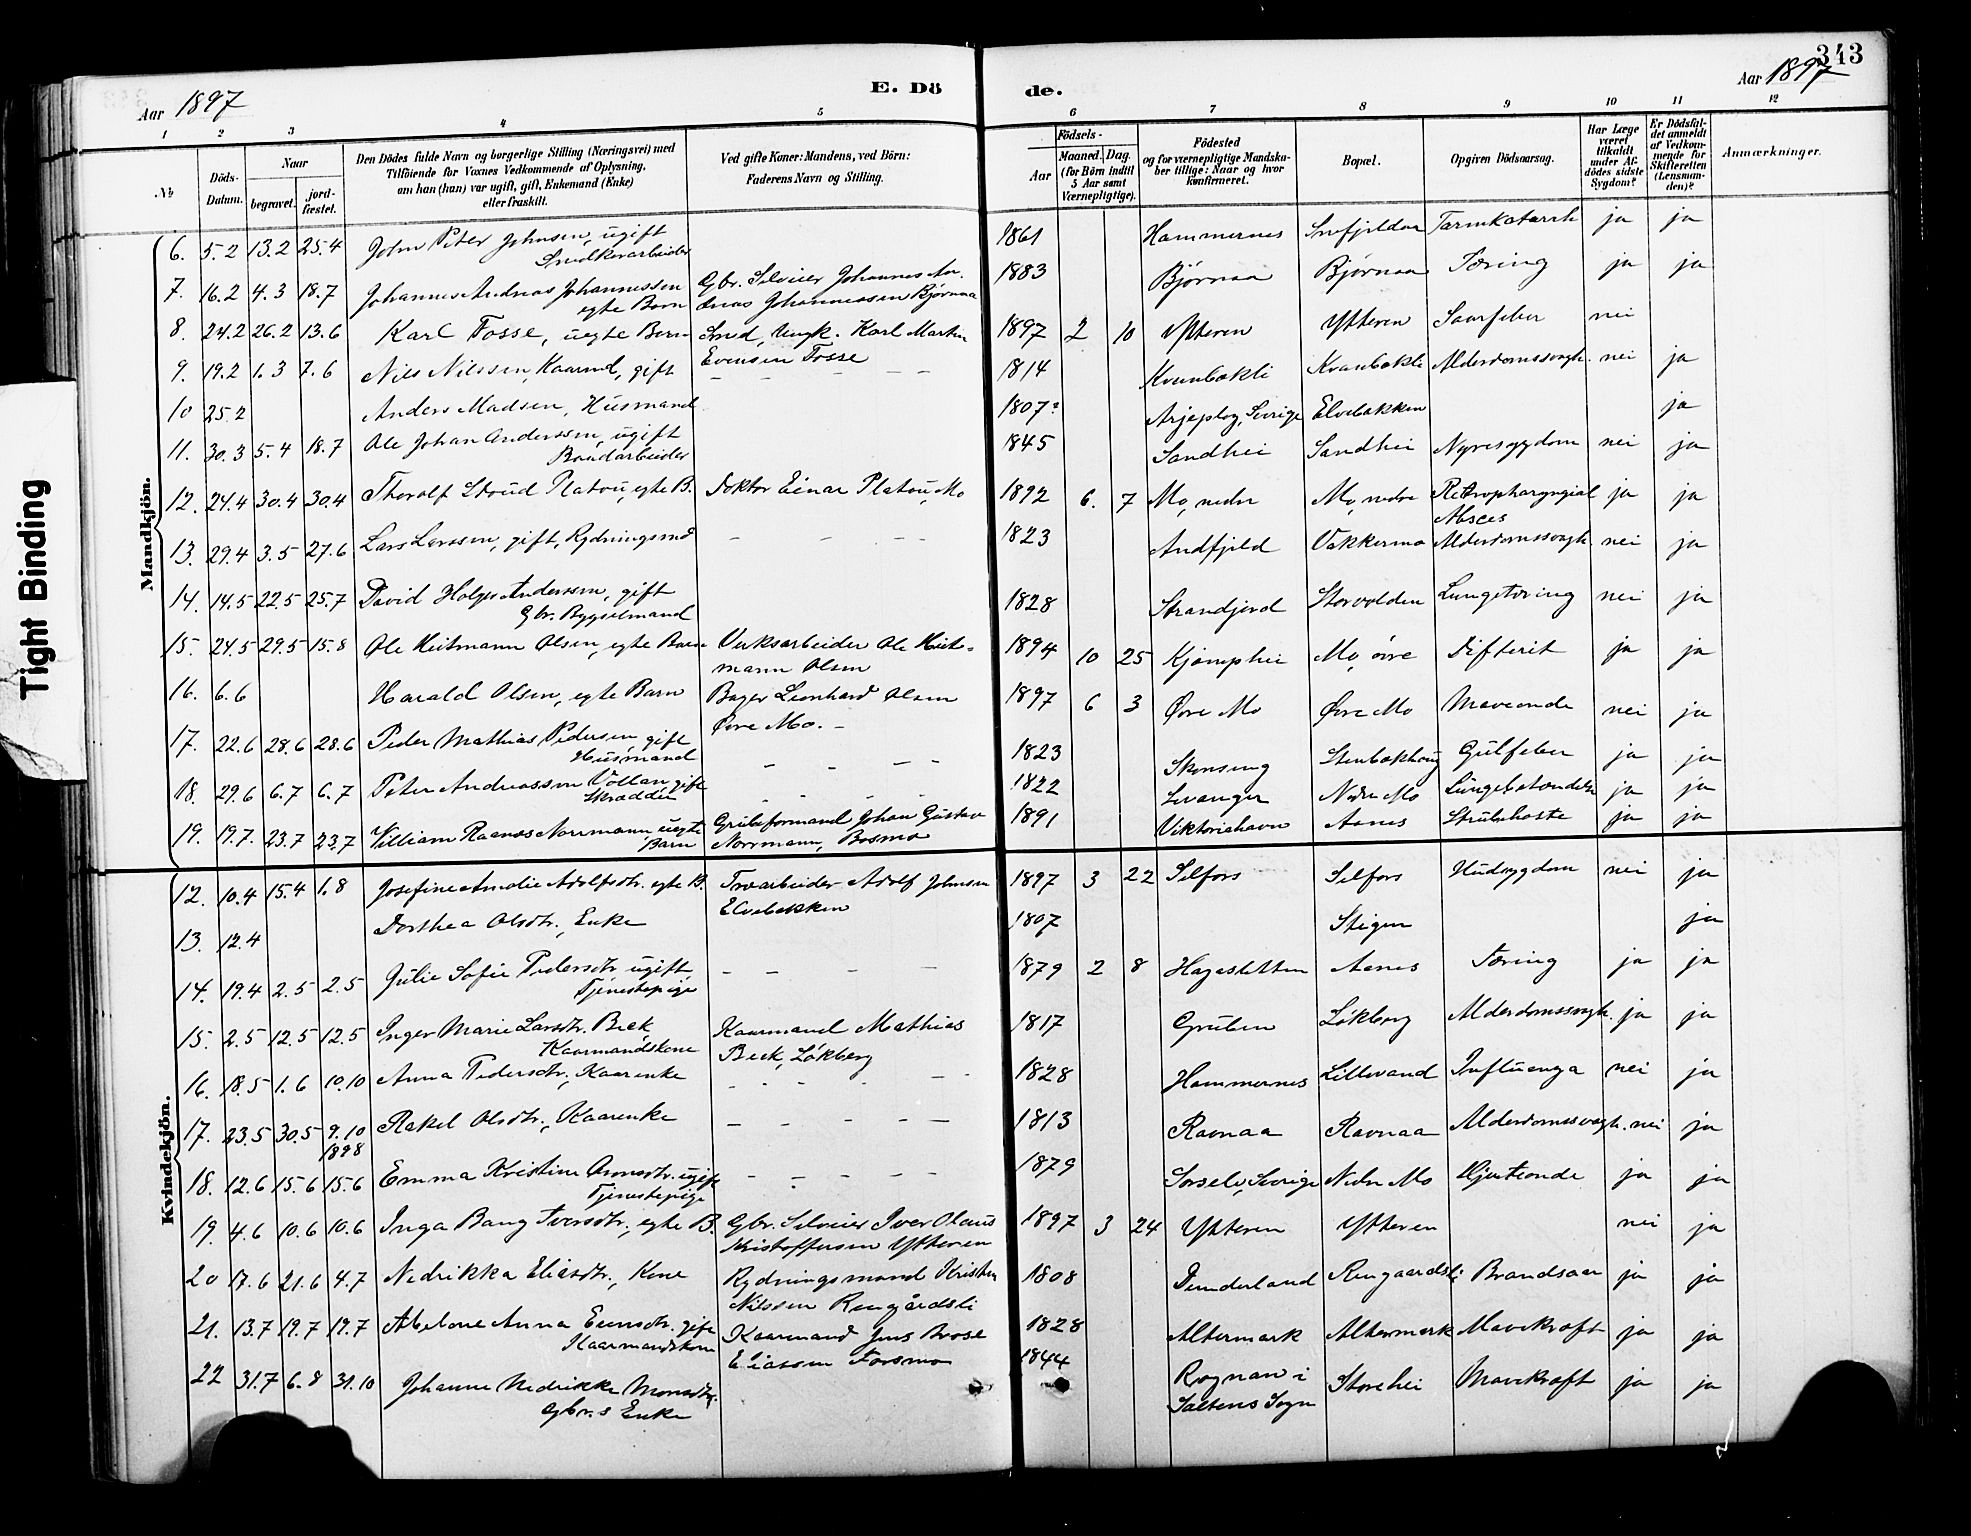 343
Aar 1897 E. Dö de. Aar 1897
1 2 3 4 5 6 7 8 9 10 11 12
№
Döds-Datum.
Naar
begravet.
jord-fæstet.
Den Dödes fulde Navn og borgerlige Stilling (Næringsvei) med
Tilföiende for Voxnes Vedkommende af Oplysning,
om han (hun) var ugift, gift, Enkemand (Enke)
eller fraskilt.
Ved gifte Koner: Mandens, ved Börn:
Faderens Navn og Stilling.
Födsels-
Aar
Maaned. Dag.
(for Börn indtil
5 Aar samt
Værnepligtige).
Födested
og for værnepligtige Mandska-
ber tillige: Naar og hvor
konfirmeret.
Bopæl.
Opgiven Dödsaarsag.
Har Læge
været
tilkaldt
under Af-
dödes sidste
Sygdom?
Er Dödsfal-
det anmeldt
af Vedkom-
mende for
Skifteretten
(Lensman-
den)?
Anmærkninger.
Tight Binding
Mandkjön.
6. 5.2 13.2 25.4 John Peter Johnsen, ugift 1861 Hammernes Tarmkatarrh ja ja
Snedkerarbeider
7. 16.2 4.3 18.7 Johannes Andreas Johannessen Gbr. Selveier Johannes An- 1883 Bjørnaa Bjørnaa Tæring ja ja
egte Barn dreas Johannessen Bjørnaa
8. 24.2 26.2 13.6 Karl Fosse, uegte Barn Smed, Ungk. Karl Martin 1897 2 10 Ytteren Ytteren nei
Evensen Fosse
9. 19.2 1.3 7.6 Nils Nilssen, Kaarmd, gift – – – – – 1814 Kvanbækli Kvanbækli Alderdomssvagh. nei ja
10 25.2 Anders Madsen, Husmand 1807? Arjeplog, Sverige Elvebakken ja
11. 30.3 5.4 18.7 Ole Johan Anderssen, ugift 1845 Sandhei Sandhei Nyresygdom nei ja
12. 24.4 30.4 30.4 Thorolf Stoud Platou, egte B. Doktor Einar Platou, Mo 1892 6. 7 Mo, nedre Mo, nedre Retropharyngial ja ja
Absces
13. 29.4 3.5 27.6 Lars Larssen, gift, Rydningsmd – – – – 1823 Andfjeld Vakkermo Alderdomssvagh. nei ja
14. 14.5 22.5 25.7 David Holger Anderssen, gift 1828 Strandjord Storvolden Lungetæring nei ja
Gbr. Bygselmand
15. 24.5 29.5 15.8 Ole Heitmann Olsen, egte Barn Verksarbeider Ole Heit- 1894 10 25 Kjemphei Mo, øvre Difterit ja ja
mann Olsen
16. 6.6 Harald Olsen, egte Barn Bager Leonhard Olsen 1897 6 3 Øvre Mo Øvre Mo Maveonde nei ja
Øvre Mo. –
17. 22.6 28.6 28.6 Peder Mathias Pedersen, gift – – – – 1823 Skonseng Stenbækhaug Gulfeber ja ja
Husmand
18. 29.6 6.7 6.7 Peter Andreassen Vollan, gift – – – 1822 Levanger Nedre Mo Lungebetændelse ja ja
Skrædder
19. 19.7. 23.7 23.7 William Raanæs Norrmann, uegte Grubeformand Johan Gustav 1891 Viktoriahavn Aanes Strubehoste ja ja
Barn Norrmann, Bosmo
Kvindekjön.
12. 10.4 15.4 1.8 Josefine Amalie Adolfsdtr. egte B. Arbeider Adolf Johnsen 1897 3 22 Selfors Selfors Hudsygdom nei ja
Elvebakken
13. 12.4 Dorthea Olsdtr., Enke 1807 Stigen ja
14. 19.4 2.5 2.5 Julie Sofie Pedersdtr, ugift, – – – – 1879 2 8 Hagasletten Aanes Tæring ja ja
Tjenestepige
15. 2.5 12.5 12.5 Inger Marie Larsdtr. Beck, Kaarmand Mathias 1817 Gruben Løkberg Alderdomssvagh. ja ja
Kaarmandskone Beck, Løkberg
16. 18.5 1.6 10.10 Anna Pedersdtr., Kaarenke – – – – – 1828 Hammernes Lillevand Influenza nei ja
17. 23.5 30.5 9.10 Rakel Olsdtr., Kaarenke – – – – – 1813 Ravnaa Ravnaa Alderdomssvagh. nei ja
1898
18. 12.6 15.6 15.6 Emma Kristine Aronsdtr. ugift – – – – – 1879 Sorsele, Sverige Nedre Mo Hjerteonde ja ja
Tjenestepige
19. 4.6 10.6 10.6 Inga Bang Iversdtr., egte B. Gbr. Selveier Iver Olaus 1897 3 24 Ytteren Ytteren nei ja
Kristoffersen Ytteren
20 17.6 21.6 4.7 Nedrikka Eliasdtr, Kone Rydningsmand Kristen 1808 Dunderland Rengaardsli Brandsaar ja ja
Nilssen Rengårdsli
21. 13.7 19.7 19.7 Abelone Anna gift Kaarmand Jens Brose 1828 Altermark Altermark Mavekræft ja ja
Kaarmandskone Eliassen Forsmo
22 31.7 6.8 31.10 Johanne Nedrikke Monsdtr. 1844 Rognan i Storehei Mavekræft ja ja
Gbr.s Enke Saltens Sogn